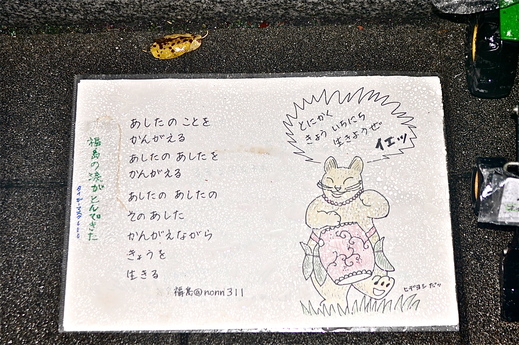 あしたの ことを
かんがえる
あしたの あしたを
かんがえる
あしたの あしたの
その あした
かんがえながら
きょうを
生きる
福島@nonn311
とにかく
きょう いちにち
生きようぜ
イエッ
福島の涙がとんできた